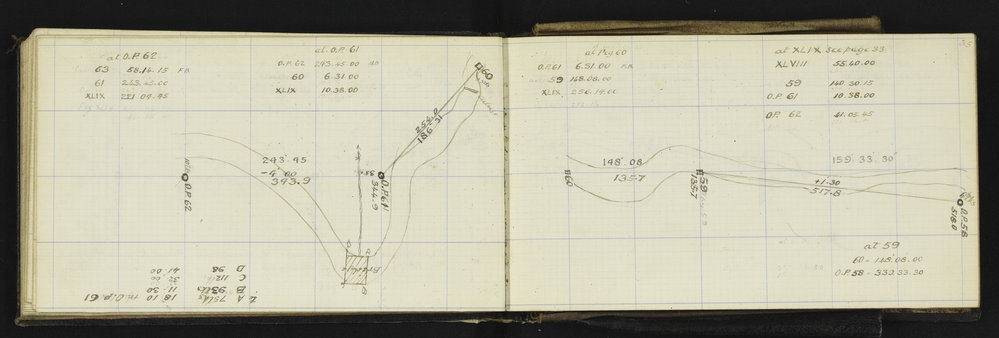 at O.P. 62
63 58.14.15 F.B.
61 243.45.00
XLIX 221.04.45
at O.P. 61
O.P. 62 243.45.00
60 6.31.00
XLIX 10.38.00
60
254.0
186.31
243.45
-4.00
343.9
O.P. 62
O.P. 61
344.9
A
B
Bridge
Z A 75lks 18.10 fm O.p. 61
B 93lks 11.30
C 112 32.00
D 98 41.00
35
at Peg 60
O.P. 61 6.31.00 F.B.
59 148.08.00
XLIX 256.14.00
at XLIX see page 33
XLVIII 55.40.00
59 140.30.15
O.P. 61 10.38.00
O.P. 62 41.05.45
148.08
135.7
60
59
135.7
159.33.30
+1.30
517.8
O.P. 58
518.0
at 59
60 - 148.08.00
O.P. 58 - 339.33.30